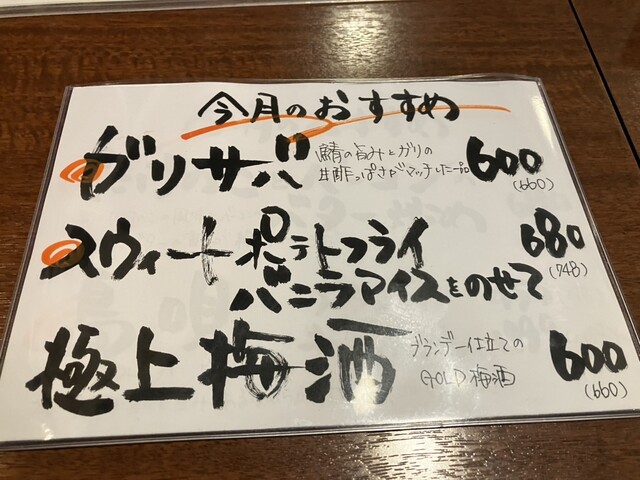 今月のおすすめ
ガリサバ
鯖の旨みとガリの
甘酢っぱさがマッチした一品
600
(660)
スウィートポテトフライ
バニラアイスをのせて
680
(748)
極上梅酒
ブランデー仕立ての
GOLD梅酒
600
(660)